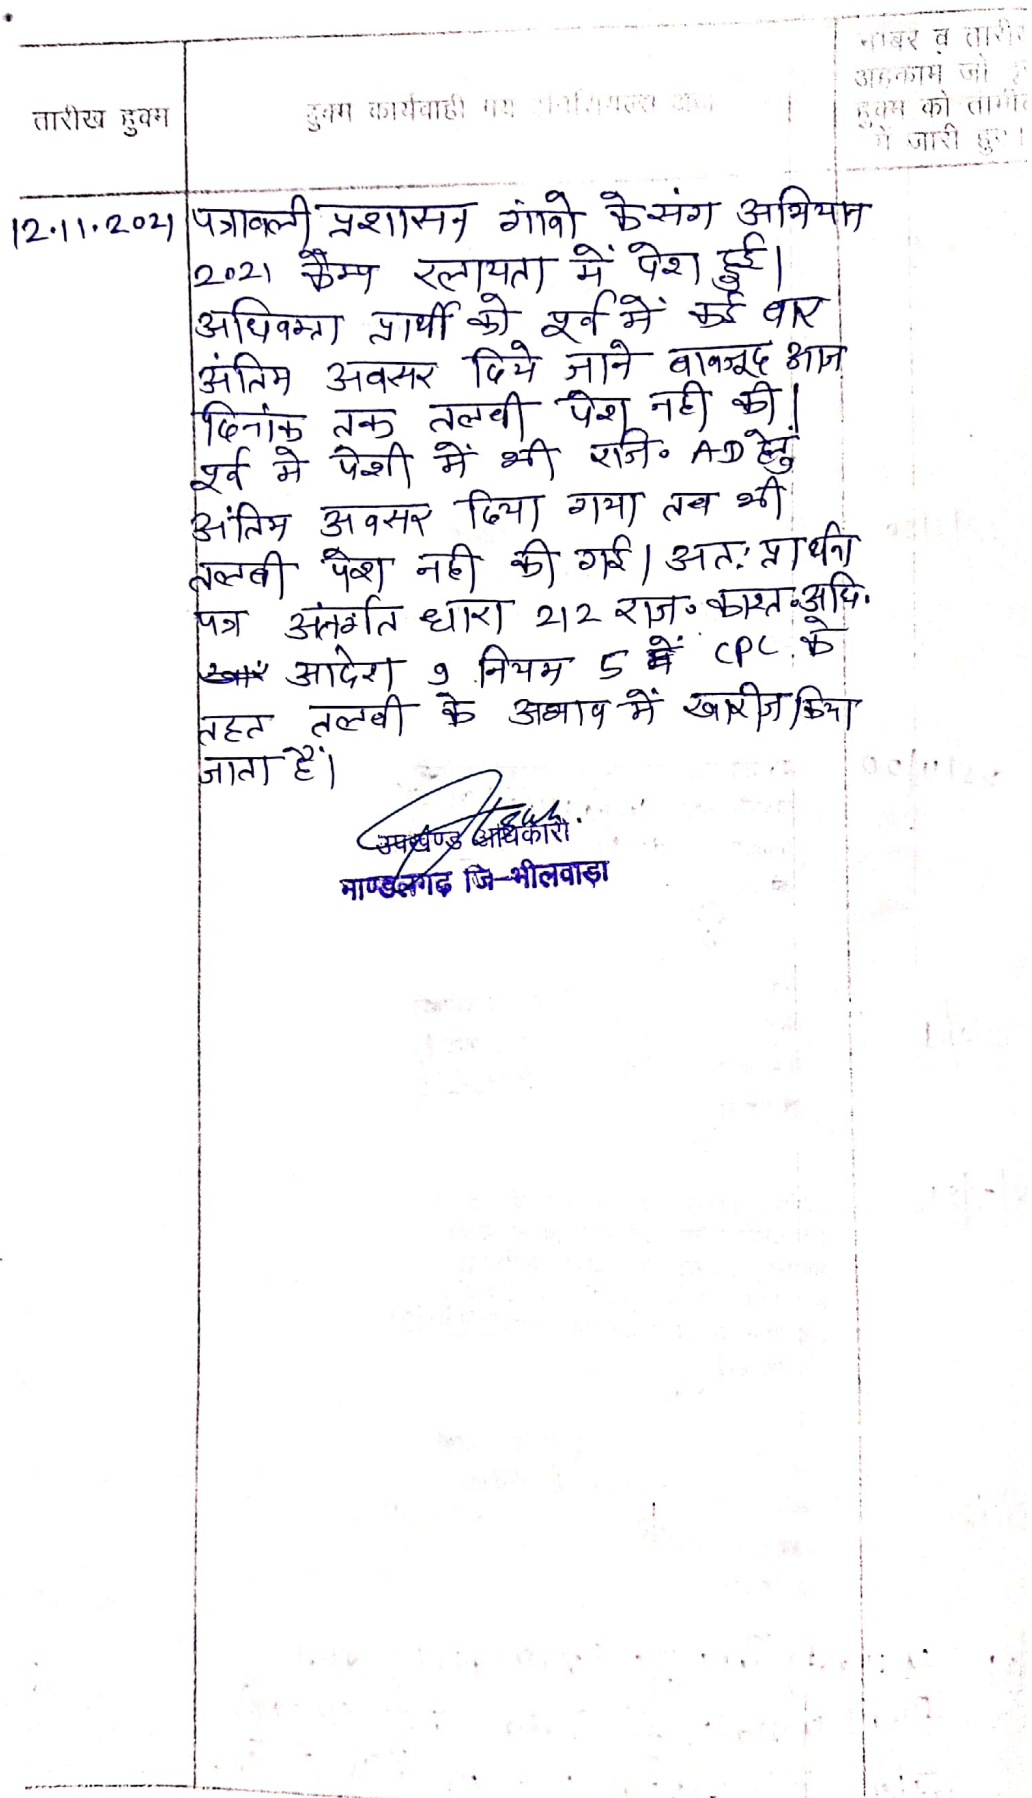 तारीख हुक्म
हुक्म कार्यवाही मय
नम्बर व तारीख
अहकाम जो
हुक्म को तामील
में जारी हुए।
12.11.2021
पत्रावली प्रशासन गांवो के संग अभियान
2021 कैम्प रलायता में पेश हुई।
अधिवक्ता प्रार्थी को पूर्व में कई बार
अंतिम अवसर दिये जाने बावजूद आज
दिनांक तक तलबी पेश नही की।
पूर्व मे पेशी में भी राजि॰ AD हेतु
अंतिम अवसर दिया गया तब भी
तलबी पेश नही की गई। अतः प्रार्थना
पत्र अंतर्गत धारा 212 राज॰ काश्त॰ अधि॰
आदेश 9 नियम 5 में CPC के
तहत तलबी के अभाव में खारीज किया
जाता हैं।
उपखण्ड अधिकारी
माण्डलगढ़ जि-भीलवाड़ा